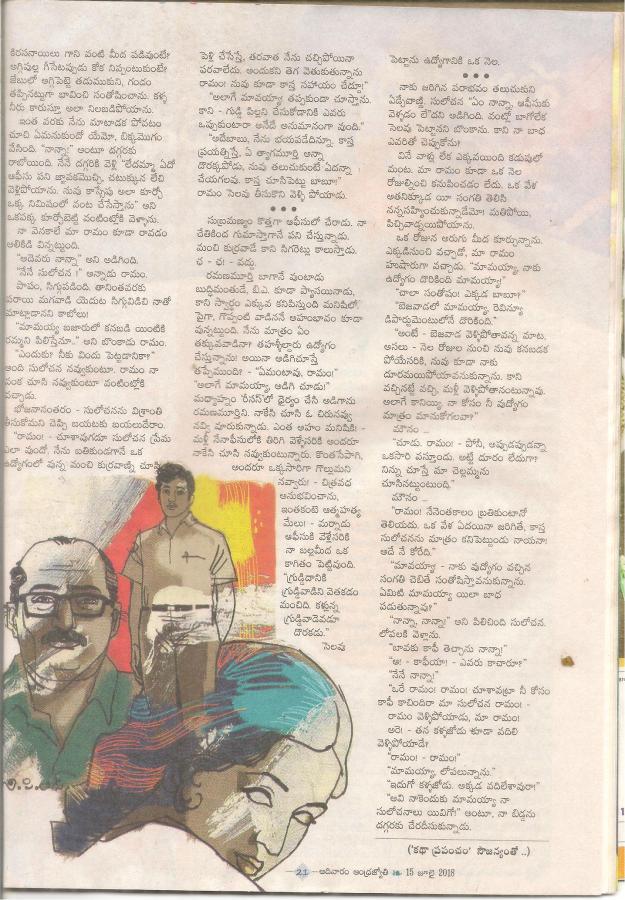 కిరసనాయిలు గాని వంటి మీద పడివుంటే?
అగ్గిపుల్ల గీసేటప్పుడు కోక నిప్పంటుకుంటే?
జేబులో అగ్గిపెట్టె తడుముకుని, గండం
తప్పినట్లుగా భావించి సంతోషించాను. కళ్ళ
నీరు కారుస్తూ అలా నిలబడిపోయాను.
ఇంత వరకు నేను మాటాడక పోవటం
చూచి ఏమనుకుందో యేమో, బిక్కమొగం
వేసింది. "నాన్నా!" అంటూ దగ్గరకు
రాబోయింది. నేనే దగ్గరికి వెళ్లి "లేదమ్మా ఏదో
ఆఫీసు పని జ్ఞాపకమొచ్చి, చటుక్కున లేచి
వెళ్లిపోయాను. నువు కాస్సేపు అలా కూర్చో
ఒక్క నిమిషంలో వంట చేసేస్తాను" అని
ఒకపక్క కూర్చోబెట్టి వంటింట్లోకి వెళ్ళాను.
నా వెనకాలే మా రామం కూడా రావడం
అలికిడి విన్నట్టుంది.
"అదెవరు నాన్నా" అని అడిగింది.
"నేనే సులోచన !" అన్నాడు రామం.
పాపం, సిగ్గుపడింది. తానింతవరకు
పరాయి మగవాడి యెదుట సిగ్గువిడిచి నాతో
మాట్లాడానని కాబోలు!
"మామయ్య బజారులో కనబడి యింటికి
రమ్మని పిలిస్తేనూ.." అని బొంకాడు రామం.
"ఎందుకు? నీకు విందు పెట్టడానికా?"
అంది సులోచన నవ్వుకుంటూ. రామం నా
వంక చూసి నవ్వుకుంటూ వంటింట్లోకి
వచ్చాడు.
భోజనానంతరం - సులోచనను విశ్రాంతి
తీసుకోమని చెప్పి బయటకు బయలుదేరాం.
"రామం! - చూశావుగదూ సులోచన స్థితి
ఎలా వుందో. నేను బతికుండగానే ఒక
ఉద్యోగంలో వున్న మంచి కుర్రవాణ్ణి చూసి
పెళ్లి చేసేస్తే, తరవాత నేను చచ్చిపోయినా
ఫరవాలేదు. అందుకని తెగ వెతుకుతున్నాను
రామం! నువు కూడా కాస్త సహాయం చేద్దూ!"
"అలాగే మావయ్యా! తప్పకుండా చూస్తాను.
కాని - గుడ్డి పిల్లని చేసుకోడానికి ఎవరు
ఒప్పుకుంటారా అనేదే అనుమానంగా వుంది."
"అదేబాబు, నేను భయపడేదిన్నూ. కాస్త
ప్రయత్నిస్తే, ఏ త్యాగమూర్తి అన్నా
దొరక్కపోడు, నువు తలుచుకుంటే ఏదన్నా
చేయగలవు. కాస్త చూసిపెట్టు బాబూ!"
రామం సెలవు తీసుకొని వెళ్ళి పోయాడు.
● ● ●
సుబ్రమణ్యం కొత్తగా ఆఫీసులో చేరాడు. నా
చేతికింద గుమాస్తాగానే పని చేస్తున్నాడు.
మంచి కుర్రవాడే కాని సిగరెట్లు కాలుస్తాడు.
ఛ - ఛ! - వద్దు.
రమణమూర్తి బాగానే వుంటాడు
బుద్ధిమంతుడే, బి.ఎ. కూడా ప్యాసయినాడు,
కాని స్వార్థం ఎక్కువ కనిపిస్తుంది మనిషిలో.
పైగా, గొప్పంటి వాడిననే అహంభావం కూడా
వున్నట్టుంది. నేను మాత్రం ఏం
తక్కువవాడినా? తహశ్శీల్దారు ఉద్యోగం
చేస్తున్నాను! అయినా అడిగిచూస్తే
తప్పేముంది! - "ఏమంటావు, రామం!"
"అలాగే మామయ్యా, అడిగి చూడు!"
మధ్యాహ్నం 'రీసస్'లో ధైర్యం చేసి అడిగాను
రమణమూర్తిని. నాకేసి చూసి ఓ చిరునవ్వు
నవ్వి వూరుకున్నాడు. ఎంత అహం మనిషికి! -
మళ్లీ నేనాఫీసులోకి తిరిగి వెళ్లేసరికి అందరూ
నాకేసి చూసి నవ్వుకుంటున్నారు. కొంతసేపాగి,
అందరూ ఒక్కసారిగా గొల్లుమని
నవ్వారు! - చిత్రవధ
అనుభవించాను,
ఇంతకంటె ఆత్మహత్య
మేలు! - మర్నాడు
ఆఫీసుకి వెళ్లేసరికి
నా బల్లమీద ఒక
కాగితం పెట్టివుంది.
"గ్రుడ్డిదానికి
గ్రుడ్డివాడిని వెతకడం
మంచిది. కళ్లున్న
గ్రుడ్డివాడెవడూ
దొరకడు."
సెలవు
పెట్టాను ఉద్యోగానికి ఒక నెల.
● ● ●
నాకు జరిగిన పరాభవం తలుచుకుని
ఏడ్చేవాణ్ణి. సులోచన "ఏం నాన్నా, ఆఫీసుకు
వెళ్ళడం లేదని అడిగింది. వంట్లో బాగోలేక
సెలవు పెట్టానని బొంకాను. కాని నా బాధ
ఎవరితో చెప్పుకోను?
వినే వాళ్లు లేక ఎక్కవయింది కడుపులో
మంట. మా రామం కూడా ఒక నెల
రోజుల్నించి కనుపించడం లేదు. ఒక వేళ
అతనిక్కూడ యీ సంగతి తెలిసి
నన్నసహ్యించుకున్నాడేమో! మతిపోయి,
పిచ్చివాడ్నయిపోయాను.
ఒక రోజున అరుగు మీద కూర్చున్నాను.
ఎక్కడినుంచి వచ్చాడో, మా రామం
హుషారుగా వచ్చాడు. "మామయ్యా, నాకు
ఉద్యోగం దొరికింది మామయ్యా!"
"చాలా సంతోషం! ఎక్కడ బాబూ?"
"బెజవాడలో మామయ్యా. రెవిన్యూ
డిపార్టుమెంటులోనే దొరికింది."
"అంటే - బెజవాడ వెళ్ళిపోతావన్న మాట.
అసలు - నెల రోజుల నుంచి నువు కనబడక
పోయేసరికి, నువు కూడా నాకు
దూరమయిపోయావనుకున్నాను. కాని
వచ్చినట్టే వచ్చి, మళ్లీ వెళ్ళిపోతానంటున్నావు.
అలాగే కానియ్యి నా కోసం నీ వుద్యోగం
మాత్రం మానుకోగలవా?"
మౌనం ...
"చూడు. రామం! - పోనీ, అప్పుడప్పుడన్నా
ఒకసారి వస్తూండు. అట్టే దూరం లేదుగా?
నిన్ను చూస్తే మా చెల్లమ్మను
చూసినట్టుంటుంది."
మౌనం ...
"రామం! నేనెంతకాలం బ్రతికుంటానో
తెలియదు. ఒక వేళ ఏదయినా జరిగితే, కాస్త
సులోచనను మాత్రం కనిపెట్టుండు నాయనా!
అదే నే కోరేది."
"మావయ్యా - నాకు వుద్యోగం వచ్చిన
సంగతి చెబితే సంతోషిస్తావనుకున్నాను.
ఏమిటి మామయ్యా యిలా బాధ
పడుతున్నావు?"
"నాన్నా, నాన్నా!" అని పిలిచింది సులోచన.
లోపలకి వెళ్లాను.
"బావకు కాఫీ తెచ్చాను నాన్నా!"
"ఆ! - కాఫీయా! - ఎవరు కాచారూ?"
"నేనే నాన్నా!"
"ఒరే రామం! రామం! చూశావట్రా నీ కోసం
కాఫీ కాచిందిరా మా సులోచన రామం! -
రామం వెళ్ళిపోయాడు, మా రామం!
అరె! - తన కళ్ళజోడు కూడా వదిలి
వెళ్ళిపోయాడే?
"రామం! - రామం!"
"మామయ్యా, లోపలున్నాను."
"ఇదుగో కళ్ళజోడు. అక్కడ వదిలేశావురా!"
"అవి నాకెందుకు మామయ్యా నా
సులోచనాలు యివిగో!" అంటూ, నా బిడ్డను
దగ్గరకు చేరదీసుకున్నాడు.
('కథా ప్రపంచం' సౌజన్యంతో ..)
21 ఆదివారం ఆంధ్రజ్యోతి 15 జూలై 2018